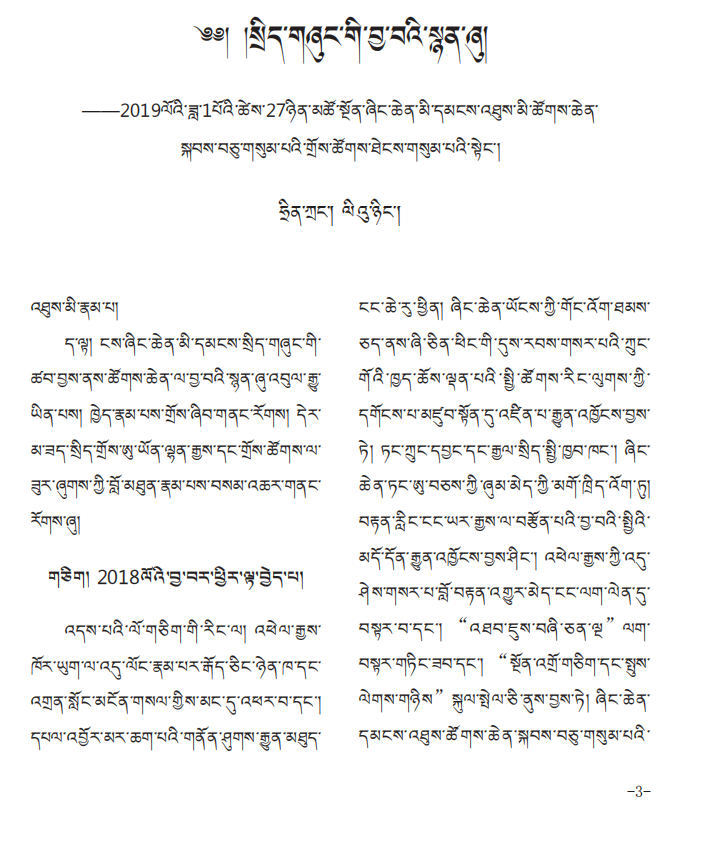 ༄༅། །སྲིད་གཞུང་གི་བྱ་བའི་སྙན་ཞུ།
——2019ལོའི་ཟླ་1པོའི་ཚེས་27ཉིན་མཚོ་སྔོན་ཞིང་ཆེན་མི་དམངས་འཐུས་མི་ཚོགས་ཆེན་
སྐབས་བཅུ་གསུམ་པའི་གྲོས་ཚོགས་ཐེངས་གསུམ་པའི་སྟེང་།
ཧྲིན་ཀྲང་། ལིའུ་ཉིང་།
འཐུས་མི་རྣམ་པ།
ད་ལྟ། ངས་ཞིང་ཆེན་མི་དམངས་སྲིད་གཞུང་གི་
ཚབ་བྱས་ནས་ཚོགས་ཆེན་ལ་བྱ་བའི་སྙན་ཞུ་འབུལ་རྒྱུ་
ཡིན་པས། ཁྱེད་རྣམ་པས་གྲོས་ཞིབ་གནང་རོགས། དེར་
མ་ཟད་སྲིད་གྲོས་ཨུ་ཡོན་ལྷན་རྒྱས་དང་གྲོས་ཚོགས་ལ་
ཟུར་ཞུགས་ཀྱི་བློ་མཐུན་རྣམ་པས་བསམ་འཆར་གནང་
རོགས་ཞུ།
གཅིག། 2018ལོའི་བྱ་བར་ཕྱིར་ལྟ་བྱེད་པ།
འདས་པའི་ལོ་གཅིག་གི་རིང་ལ། འཕེལ་རྒྱས་
ཁོར་ཡུག་ལ་འདུ་ལོང་རྣམ་པར་རྒོད་ཅིང་ཉེན་ཁ་དང་
འགྲན་སློང་མངོན་གསལ་གྱིས་མང་དུ་འཕར་བ་དང་།
དཔལ་འབྱོར་མར་ཆག་པའི་གནོན་ཤུགས་རྒྱུན་མཐུད་
ངང་ཆེ་རུ་ཕྱིན། ཞིང་ཆེན་ཡོངས་ཀྱི་གོང་འོག་ཐམས་
ཅད་ནས་ཞི་ཅིན་ཕིང་གི་དུས་རབས་གསར་པའི་ཀྲུང་
གོའི་ཁྱད་ཆོས་ལྡན་པའི་སྤྱི་ཚོགས་རིང་ལུགས་ཀྱི་
དགོངས་པ་མཛུབ་སྟོན་དུ་འཛིན་པ་རྒྱུན་འཁྱོངས་བྱས་
ཏེ། ཏང་ཀྲུང་དབྱང་དང་རྒྱལ་སྲིད་སྤྱི་ཁྱབ་ཁང་། ཞིང་
ཆེན་ཏང་ཨུ་བཅས་ཀྱི་ཞུམ་མེད་ཀྱི་མགོ་ཁྲིད་འོག་ཏུ།
བརྟན་རླིང་ངང་ཡར་རྒྱས་ལ་བརྩོན་པའི་བྱ་བའི་སྤྱིའི་
མདོ་དོན་རྒྱུན་འཁྱོངས་བྱས་ཤིང་། འཕེལ་རྒྱས་ཀྱི་འདུ་
ཤེས་གསར་པ་བློ་བརྟན་འགྱུར་མེད་ངང་ལག་ལེན་དུ་
བསྟར་བ་དང་། “འཐབ་ཇུས་བཞི་ཅན་ལྔ” ལག་
བསྟར་གཏིང་ཟབ་དང་། “སྔོན་འགྲོ་གཅིག་དང་སྤུས་
ལེགས་གཉིས” སྐུལ་སྤེལ་ཅི་ནུས་བྱས་ཏེ། ཞིང་ཆེན་
དམངས་འཐུས་ཚོགས་ཆེན་སྐབས་བཅུ་གསུམ་པའི་
-3-